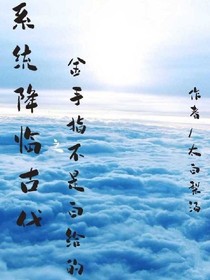 系统降临古代
之
金手指不是白给的
作者/太白梨酒